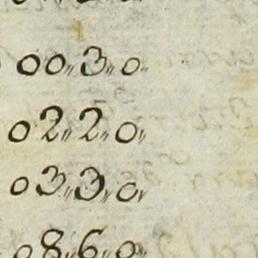 00〃3〃0〃
02〃2〃0〃
03〃3〃0〃
08〃6〃0〃